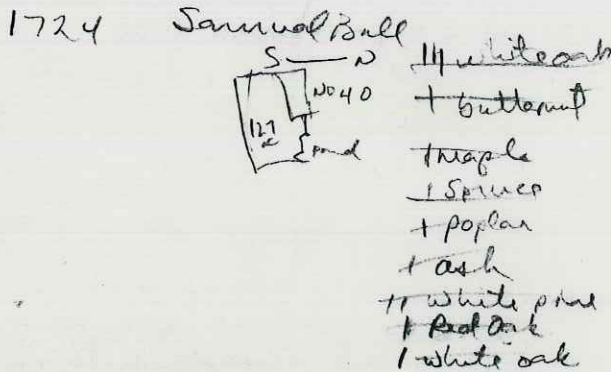 1724 Samuel Ball
S — N
No 40
127
ac
pond
||| white oak
+ butternut
1 maple
1 Spruce
+ poplar
+ ash
11 white pine
1 Red Oak
1 white oak